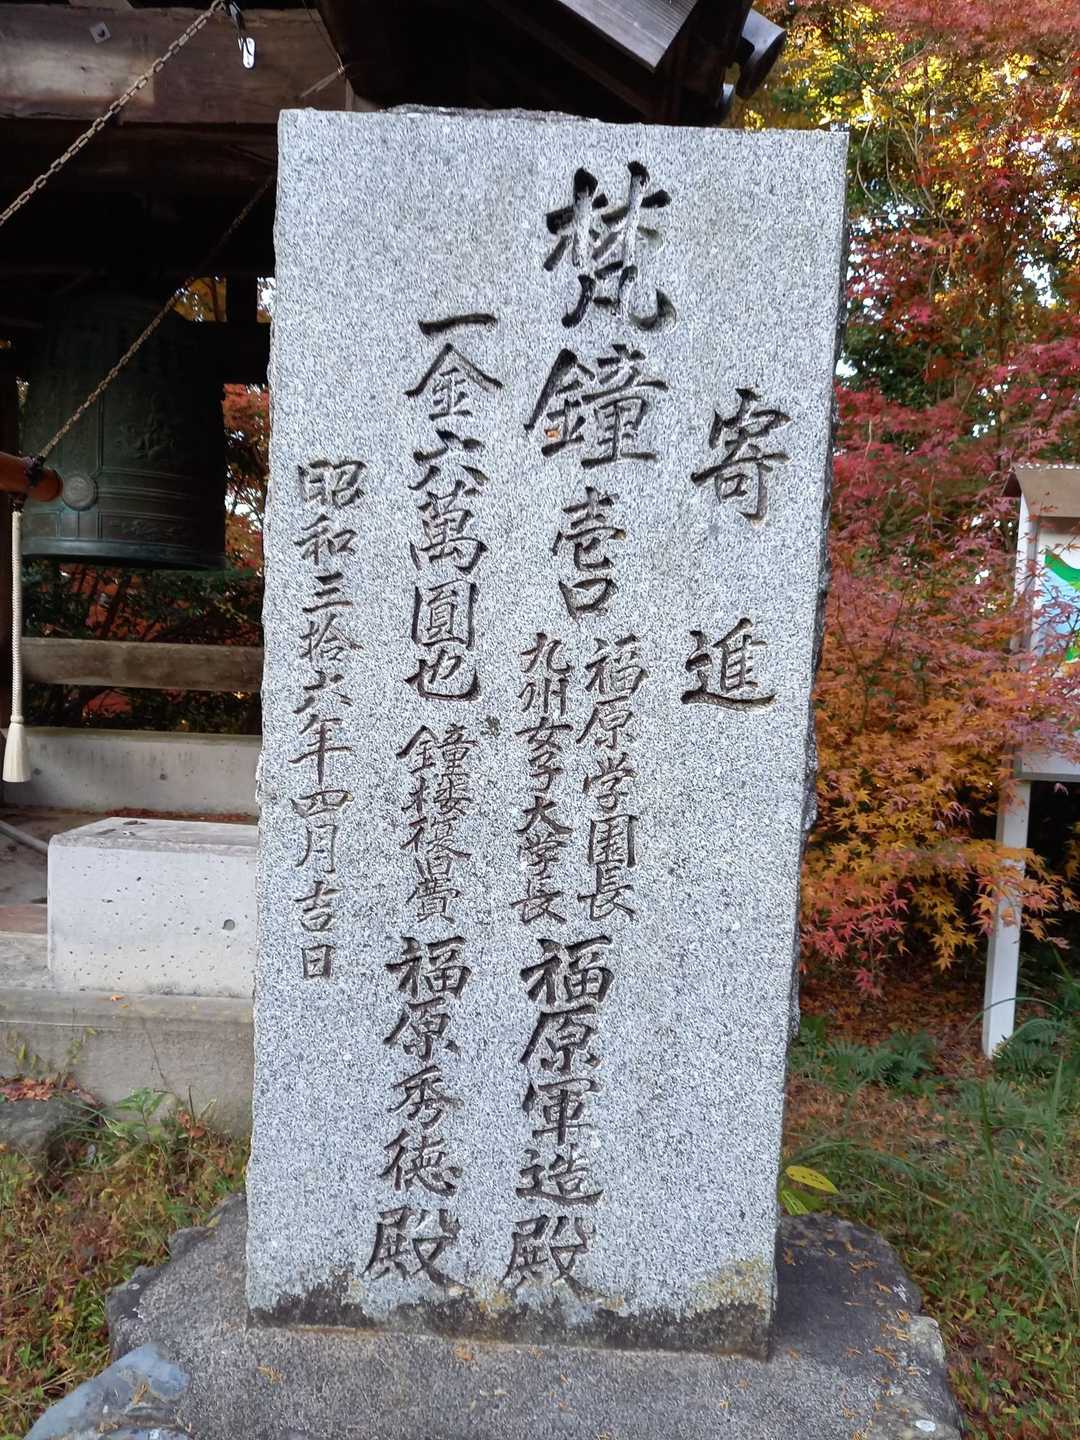 寄進
梵鐘壱口
福原学園長
九州女子大学長
福原軍造殿
一金六萬圓也
鐘楼復旧費
福原秀徳殿
昭和三拾六年四月吉日